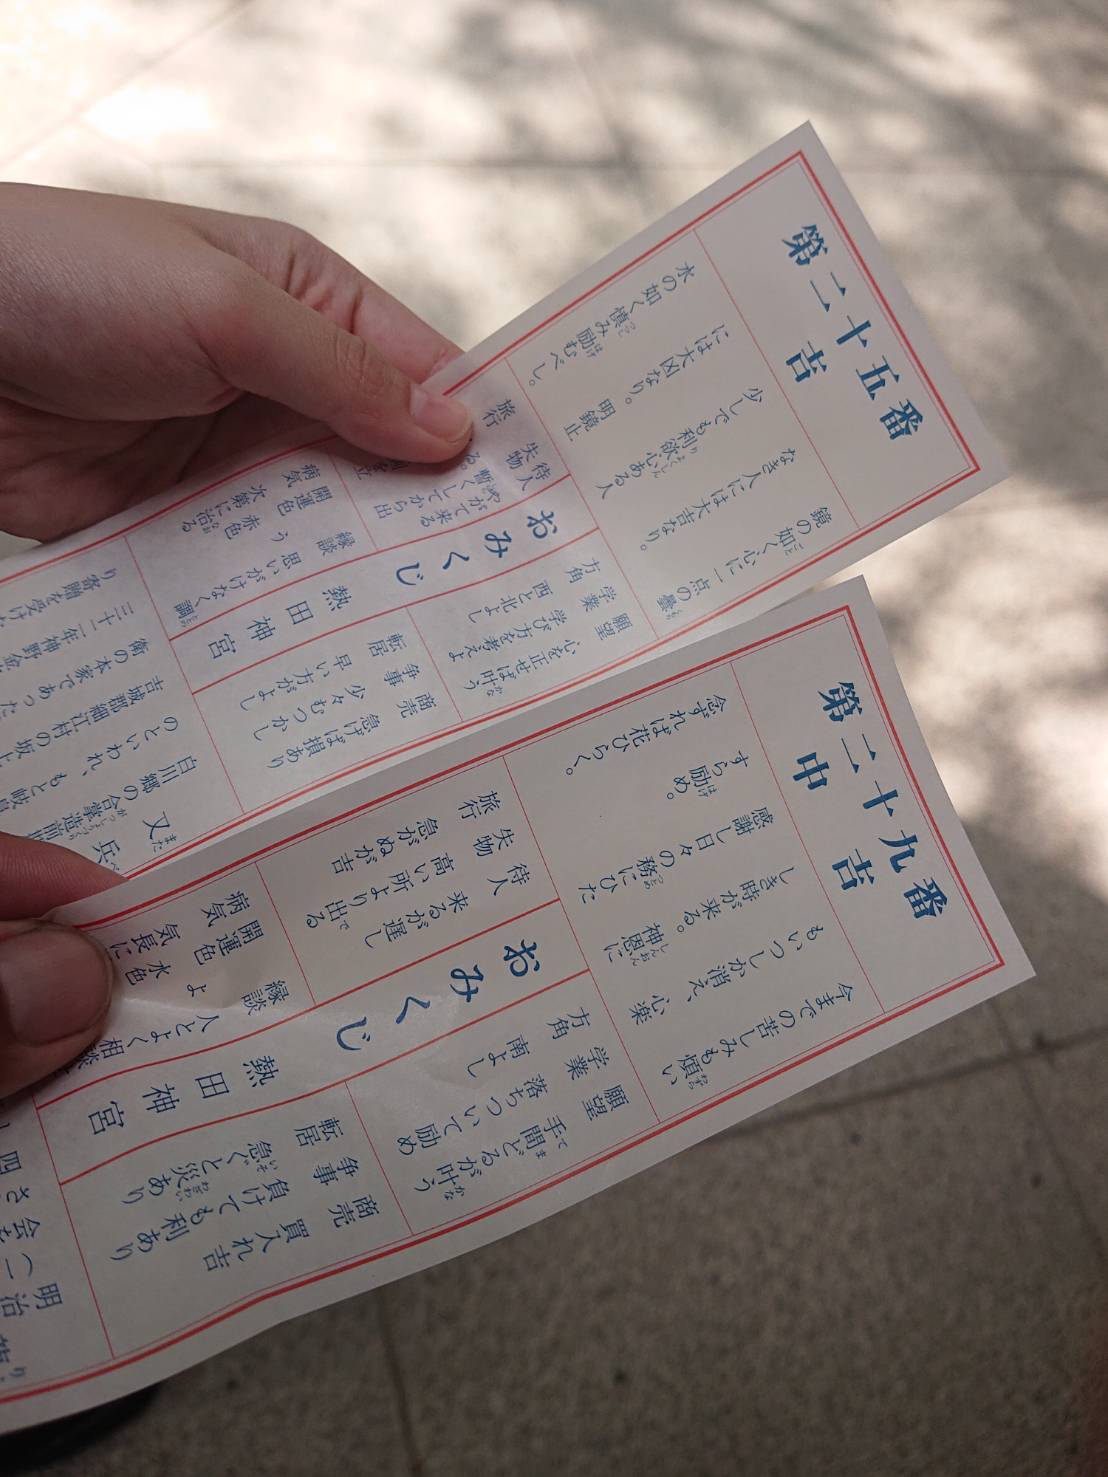 第二十五番
吉
鏡の如く心に一点の曇
なき人には大吉なり。
少しでも利欲心ある人
には大凶なり。 明鏡止
水の如く慎み励むべし。
願望 心を正せば叶う
学業 学び方を考えよ
方角 西と北よし
おみくじ
熱田神宮
待人 やがて来る
失物 暫くしてから出
る。
旅行
商売 急げば損あり
争事 少々むつかし
転居 早い方がよし
縁談 思いがけなく調
う
開運色 赤色
病気 次第に治る
又
白川郷の合掌造
のといわれ、もと岐
吉城郡細江村の坂上
衛の本家であった
三十二年神野金
り寄贈を受け
第二十九番
中吉
今までの苦しみも煩い
もいつしか消え、心楽
しき時が来る。神恩に
感謝し日々の務にひた
すら励め。
念ずれば花ひらく。
願望 手間どるが叶う
学業 落ちついて励め
方角 南よし
おみくじ
熱田神宮
待人 来るが遅し
失物 高い所より出る
旅行 急がぬが吉
商売 買入れ吉
争事 負けても利あり
転居 急ぐと災あり
縁談 人とよく相談
よ
開運色 水色
病気 気長に
明治